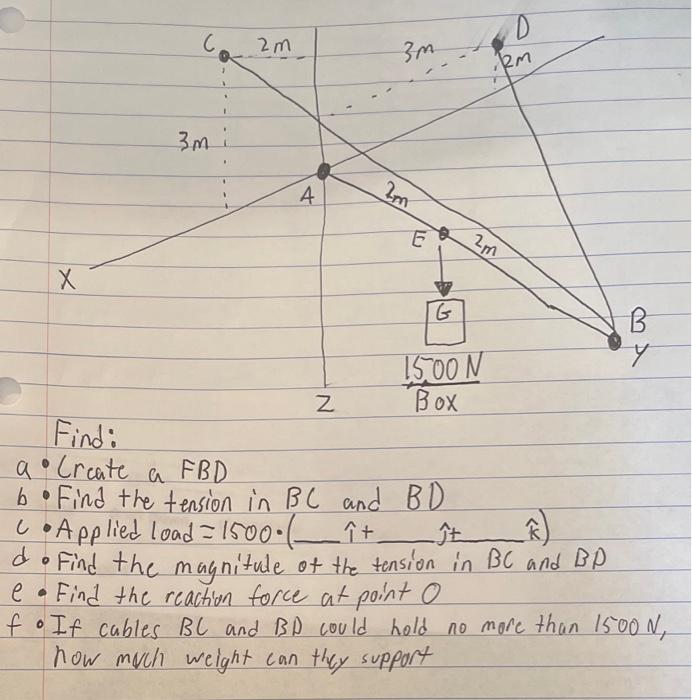 C 2m D
3m 2m
3m
A 2m
E 2m
X
G
B
1500 N Y
Z Box
Find:
a • Create a FBD
b • Find the tension in BC and BD
c • Applied load = 1500 • (___ î + ___ ĵ + ___ k̂)
d • Find the magnitude of the tension in BC and BD
e • Find the reaction force at point O
f • If cables BC and BD could hold no more than 1500 N,
how much weight can they support